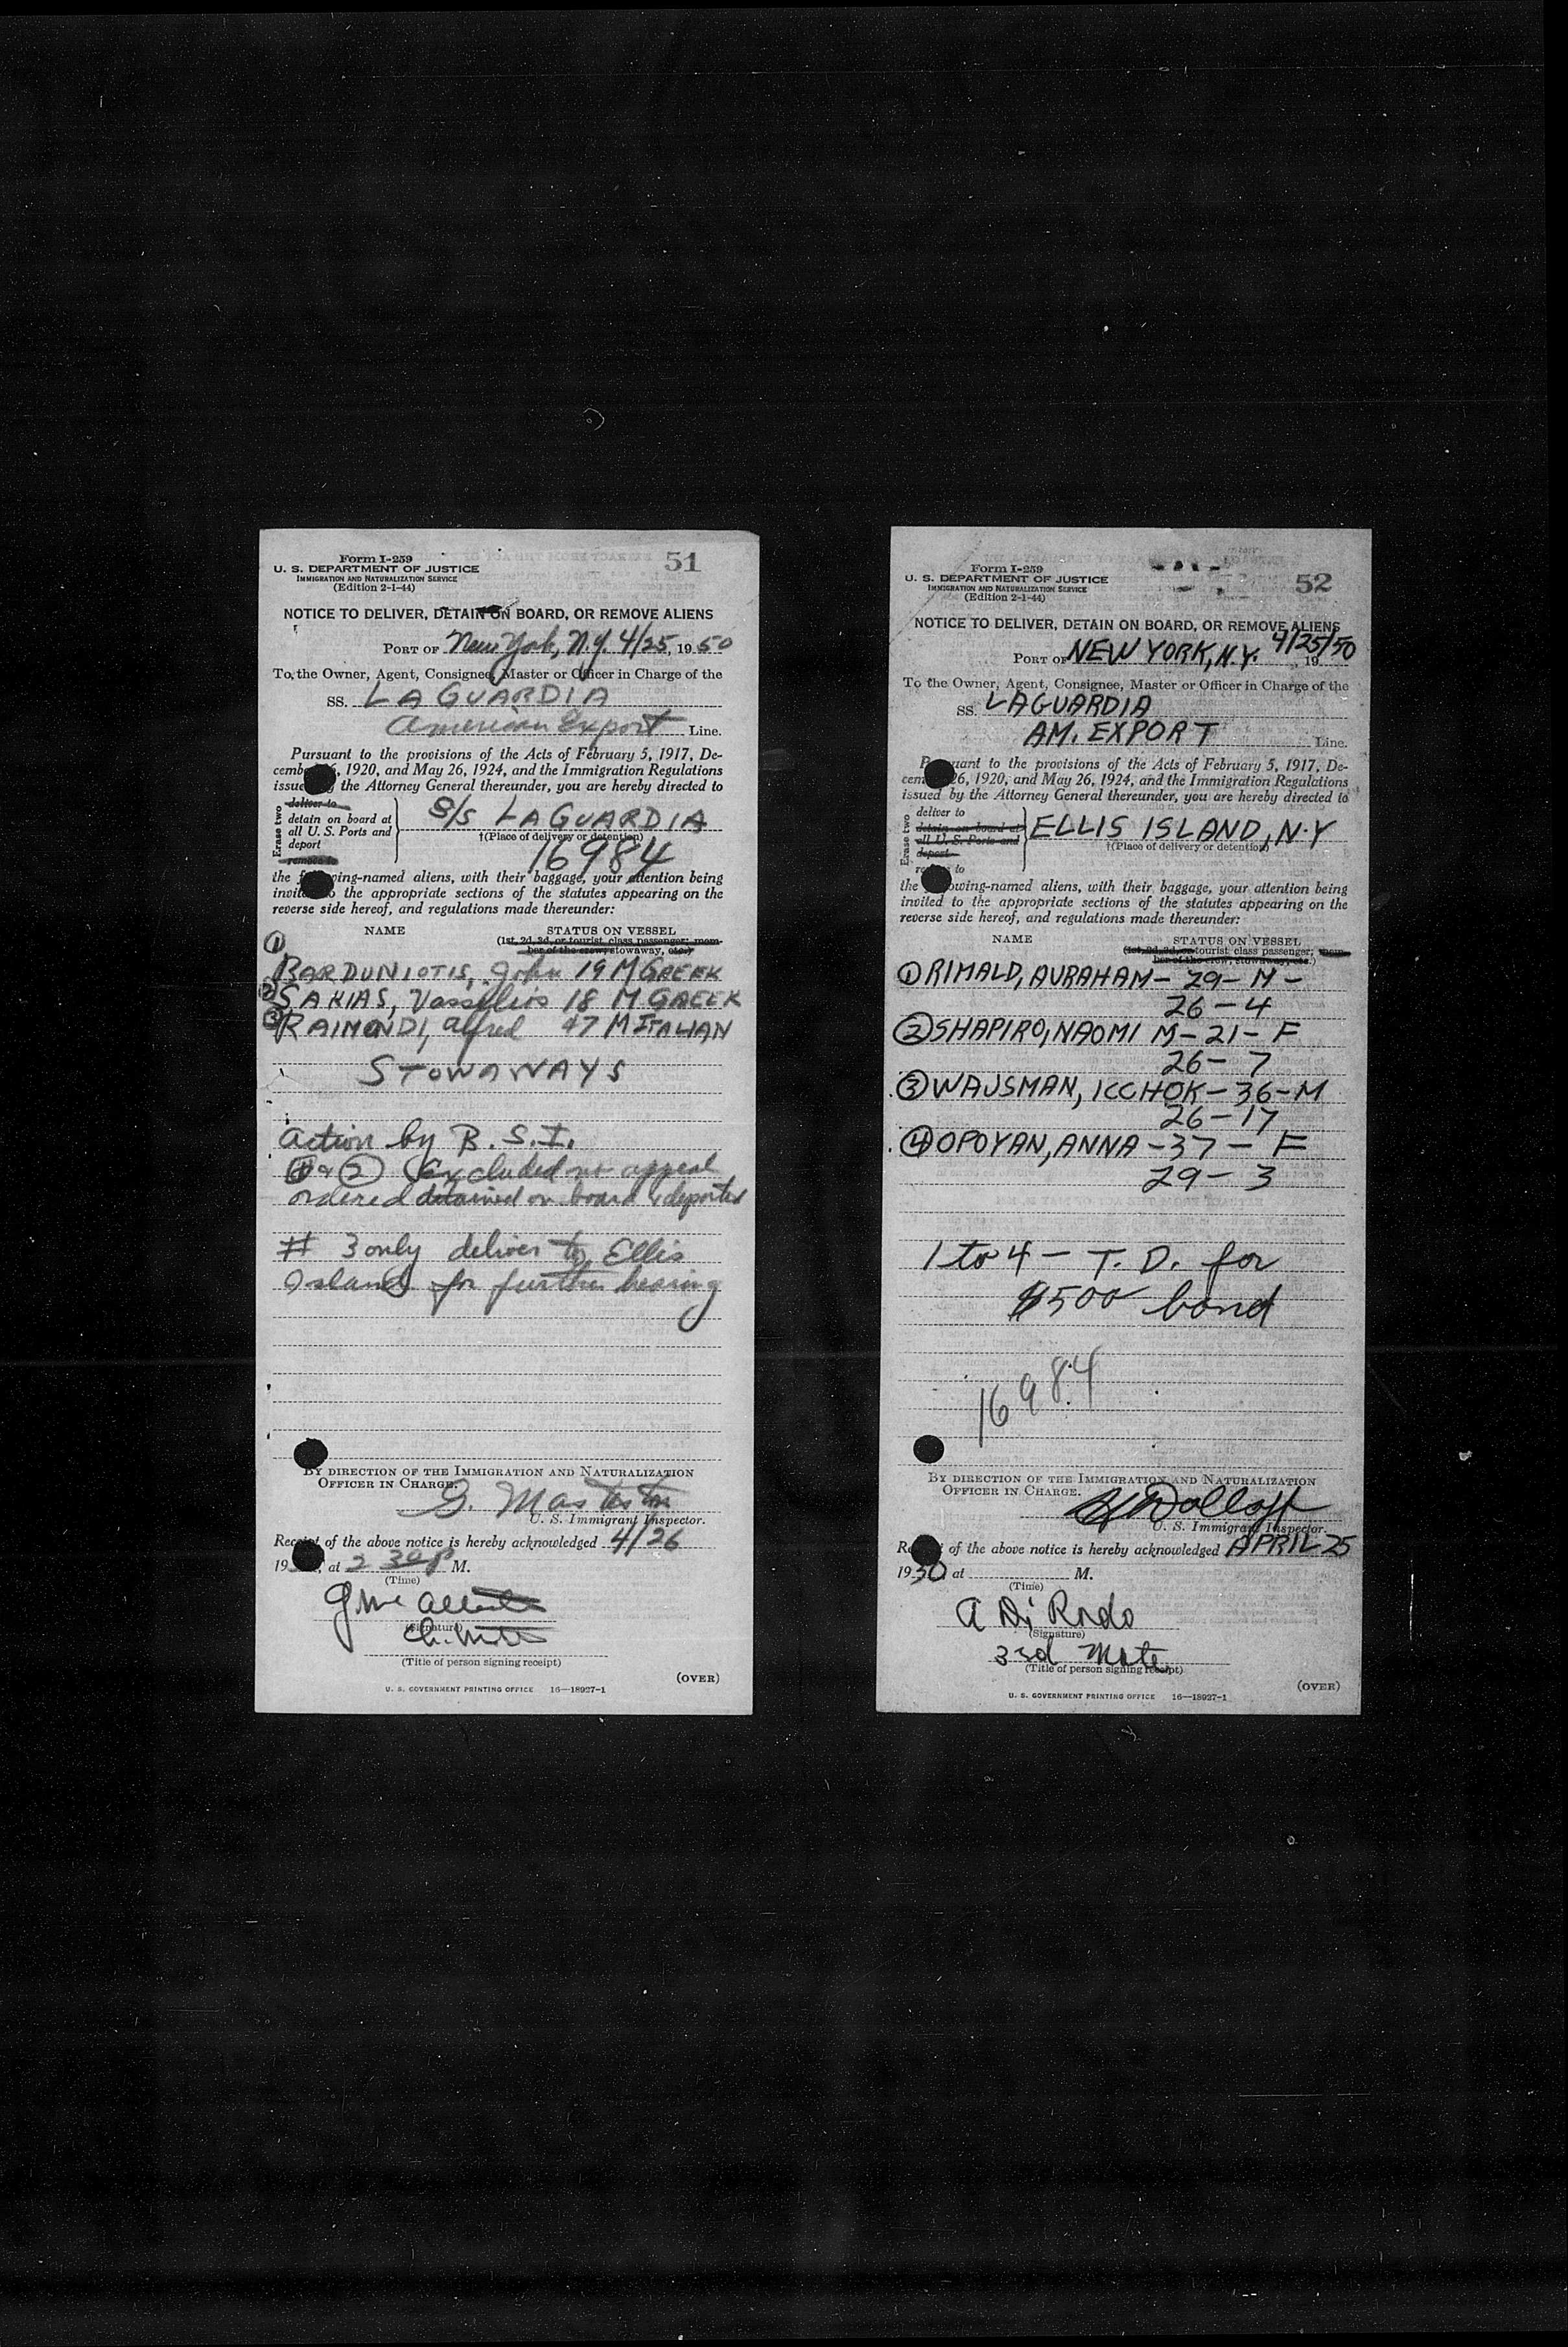 Form I-259
51
U. S. DEPARTMENT OF JUSTICE
IMMIGRATION AND NATURALIZATION SERVICE
(Edition 2-1-44)
NOTICE TO DELIVER, DETAIN ON BOARD, OR REMOVE ALIENS
PORT OF New York, N.Y. 4/25, 1950
To the Owner, Agent, Consignee, Master or Officer in Charge of the
SS. LA GUARDIA
American Export Line.
Pursuant to the provisions of the Acts of February 5, 1917, De-
cember 26, 1920, and May 26, 1924, and the Immigration Regulations
issued by the Attorney General thereunder, you are hereby directed to
Erase two
deliver to
detain on board at
all U. S. Ports and
deport
remove to
S/S LA GUARDIA
†(Place of delivery or detention)
16984
the following-named aliens, with their baggage, your attention being
invited to the appropriate sections of the statutes appearing on the
reverse side hereof, and regulations made thereunder:
NAME STATUS ON VESSEL
(1st, 2d, 3d, or tourist class passenger; mem-
ber of the crew, stowaway, etc.)
① BARDUNIOTIS, John 19 M GREEK
② SAKIAS, Vassilios 18 M GREEK
③ RAIMONDI, Alfred 47 M ITALIAN
STOWAWAYS
Action by B. S. I.
① & ② Excluded no appeal
ordered detained on board & deported
# 3 only deliver to Ellis
Island for further hearing
BY DIRECTION OF THE IMMIGRATION AND NATURALIZATION
OFFICER IN CHARGE.
U. S. Immigrant Inspector.
Receipt of the above notice is hereby acknowledged 4/26
19 , at 2 30 P M.
(Time)
(Signature)
(Title of person signing receipt)
(OVER)
U. S. GOVERNMENT PRINTING OFFICE 16—18927-1
Form I-259
52
U. S. DEPARTMENT OF JUSTICE
IMMIGRATION AND NATURALIZATION SERVICE
(Edition 2-1-44)
NOTICE TO DELIVER, DETAIN ON BOARD, OR REMOVE ALIENS
PORT OF NEW YORK, N.Y. 4/25/50, 19
To the Owner, Agent, Consignee, Master or Officer in Charge of the
SS. LAGUARDIA
AM. EXPORT Line.
Pursuant to the provisions of the Acts of February 5, 1917, De-
cember 26, 1920, and May 26, 1924, and the Immigration Regulations
issued by the Attorney General thereunder, you are hereby directed to
Erase two
deliver to
detain on board at
all U. S. Ports and
deport
remove to
ELLIS ISLAND, N.Y
†(Place of delivery or detention)
the following-named aliens, with their baggage, your attention being
invited to the appropriate sections of the statutes appearing on the
reverse side hereof, and regulations made thereunder:
NAME STATUS ON VESSEL
(1st, 2d, 3d, or tourist class passenger; mem-
ber of the crew, stowaway, etc.)
① RIMALD, AVRAHAM - 29 - M -
26 - 4
② SHAPIRO, NAOMI M - 21 - F
26 - 7
③ WAJSMAN, ICCHOK - 36 - M
26 - 17
④ OPOYAN, ANNA - 37 - F
29 - 3
1 to 4 - T. D. for
$500 bond
16984
BY DIRECTION OF THE IMMIGRATION AND NATURALIZATION
OFFICER IN CHARGE.
U. S. Immigrant Inspector.
Receipt of the above notice is hereby acknowledged APRIL 25
1950, at M.
(Time)
A Di
(Signature)
3rd Mate
(Title of person signing receipt)
(OVER)
U. S. GOVERNMENT PRINTING OFFICE 16—18927-1